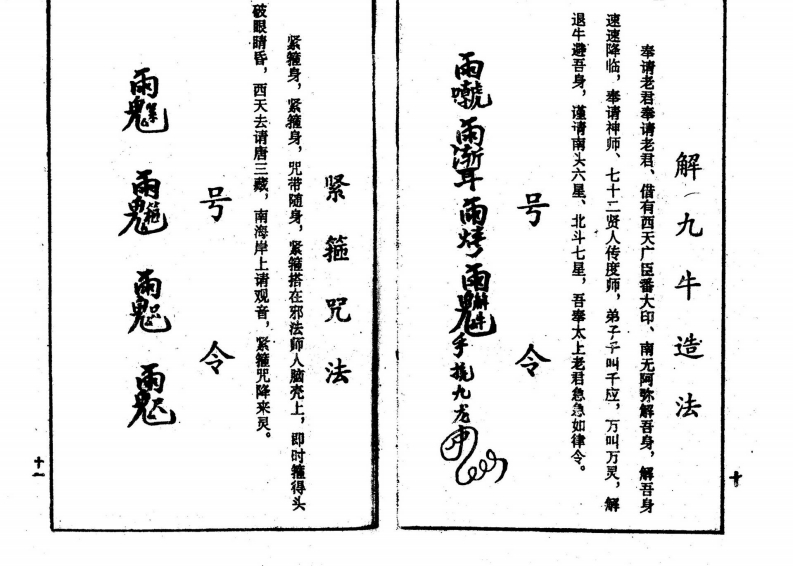 解九牛造法
奉请老君奉请老君、借有西天广臣番大印、南无阿弥解吾身，解吾身
速速降临，奉请神师、七十二贤人传度师，弟子千叫千应，万叫万灵，解
退牛避吾身，谨请南头六星、北斗七星，吾奉太上老君急急如律令。
号令
手挽九龙
十
紧箍咒法
紧箍身，紧箍身，咒带随身，紧箍搭在邪法师人脑壳上，即时箍得头
破眼睛昏，西天去请唐三藏，南海岸上请观音，紧箍咒降来灵。
号令
十一